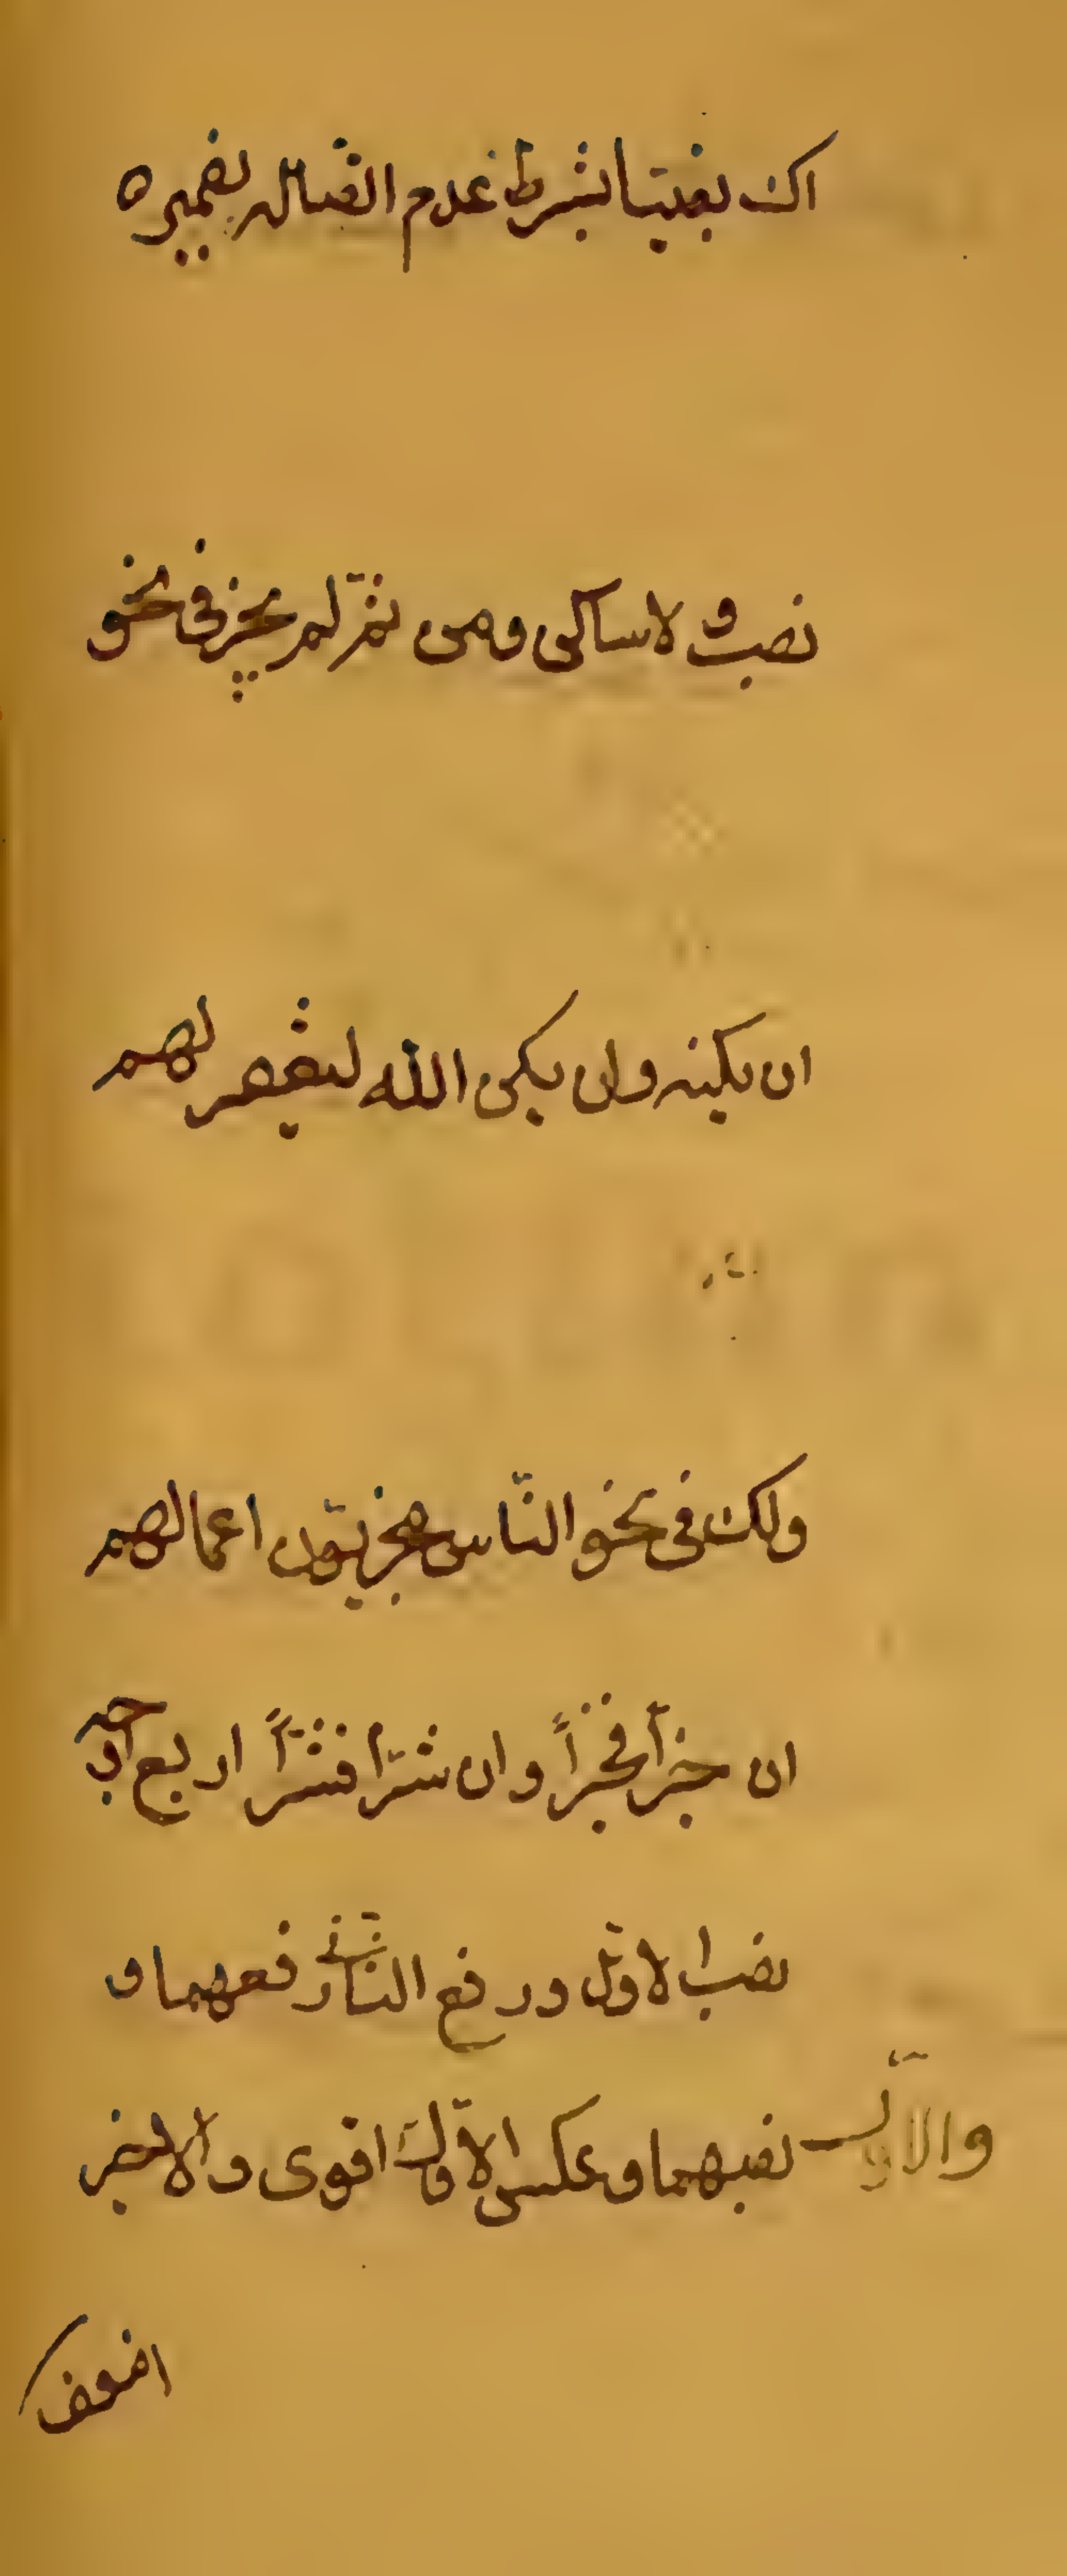 اك بغيّا بشرط عدم اتصاله بضمير
نصب و لا ساكن ومن ثمّ لم يجز فى نحو
ان يكنه وان يكن الله ليغفر لهم
ولك فى نحو النّاس مجزيّون اعمالهم
ان خيراً فخيراً وان شرّاً فشرّاً اربع اوجه
نصب الاوّل ورفع الثّانى رفعهما و
والاوّل نصبهما و عكس الاوّل اقوى والاخير
اضعف